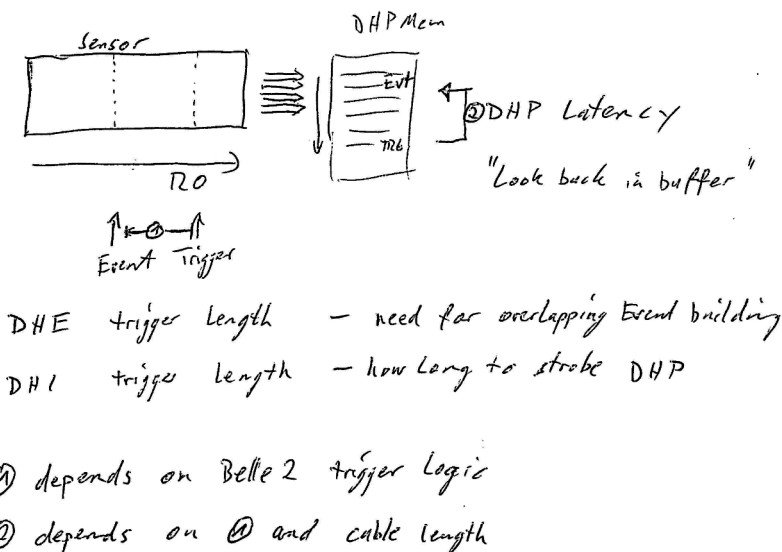 DHP Mem
Sensor
Evt
TRG
② DHP Latency
"Look back in buffer"
RO
①
Event Trigger
DHE trigger Length – need for overlapping Event building
DHI trigger Length – how Long to strobe DHP
① depends on Belle 2 trigger Logic
② depends on ① and cable length